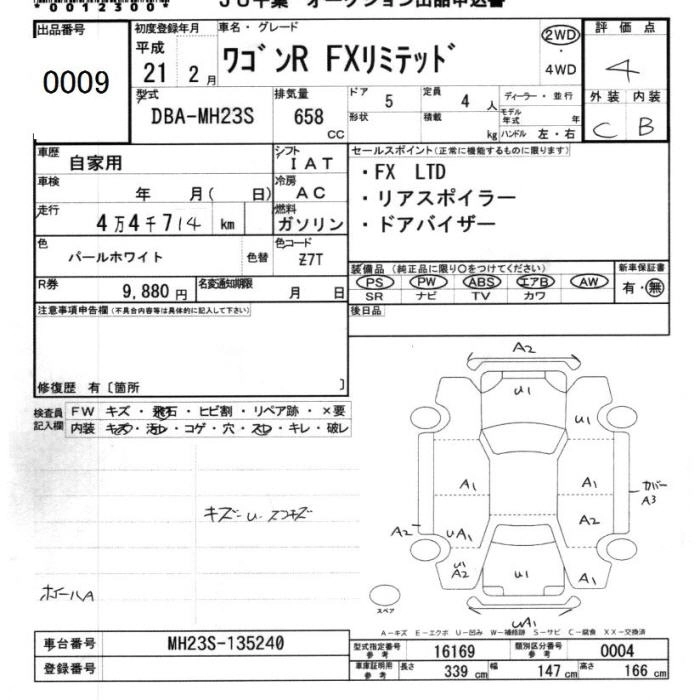 *00123004*
JU千葉 オークション出品申込書
出品番号
0009
初度登録年月
平成
21 2月
車名・グレード
ワゴンR FXリミテッド
2WD
・
4WD
評価点
4
外装 内装
C B
型式
DBA-MH23S
排気量
658
CC
ドア 5
定員 4 人
形状
積載 kg
ディーラー・並行
モデル年式 年
ハンドル 左・右
車歴
自家用
シフト
IAT
車検
年 月( 日)
冷房
AC
走行
4万4千714 km
燃料
ガソリン
色
パールホワイト
色替
色コード
Z7T
R券
9,880円
名変通知期限
月 日
セールスポイント(正常に機能するものに限ります)
・FX LTD
・リアスポイラー
・ドアバイザー
装備品(純正品に限り○をつけてください)
PS PW ABS エアB AW
SR ナビ TV カワ
新車保証書
有・無
後日品
注意事項申告欄(不具合内容等は具体的に記入して下さい)
修復歴 有〔箇所 〕
検査員
記入欄
FW キズ・飛石・ヒビ割・リペア跡・×要
内装 キズ・汚レ・コゲ・穴・スレ・キレ・破レ
キズ・U・スリキズ
ホイールA
A2
U1
U1
A1
A1
カバー
A3
A2
A2
UA1
U1
A2
U1
A1
UA1
スペア
A-キズ E-エクボ U-凹み W-補修跡 S-サビ C-腐食 XX-交換済
車台番号 MH23S-135240
登録番号
型式指定番号
参考
16169
類別区分番号
参考
0004
車庫証明用
参考
長さ 339 cm 幅 147 cm 高さ 166 cm